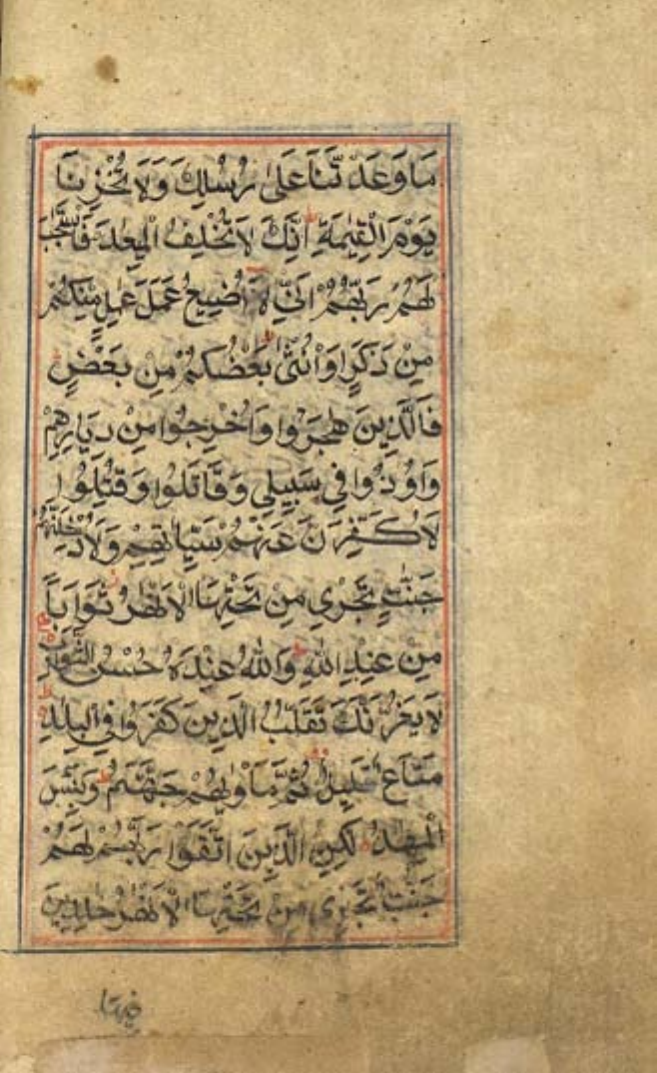 مَا وَعَدْتَّنَا عَلٰى رُسُلِكَ وَلَا تُخْزِنَا
يَوْمَ الْقِيٰمَةِ ط اِنَّكَ لَا تُخْلِفُ الْمِيْعَادَ فَاسْتَجَابَ
لَهُمْ رَبُّهُمْ اَنِّي لَا اُضِيعُ عَمَلَ عٰمِلٍ مِّنْكُمْ
مِنْ ذَكَرٍ اَوْ اُنْثٰى ج بَعْضُكُمْ مِنْ بَعْضٍ
فَالَّذِينَ هَاجَرُوا وَاُخْرِجُوا مِنْ دِيَارِهِمْ
وَاُوذُوا فِي سَبِيلِي وَقَاتَلُوا وَقُتِلُوا
لَاُكَفِّرَنَّ عَنْهُمْ سَيِّاٰتِهِمْ وَلَاُدْخِلَنَّهُمْ
جَنّٰتٍ تَجْرِي مِنْ تَحْتِهَا الْاَنْهٰرُ ثَوَابًا
مِنْ عِنْدِ اللّٰهِ ط وَاللّٰهُ عِنْدَهُ حُسْنُ الثَّوَابِ
لَا يَغُرَّنَّكَ تَقَلُّبُ الَّذِينَ كَفَرُوا فِي الْبِلَادِ
مَتَاعٌ قَلِيلٌ ثُمَّ مَأْوٰىهُمْ جَهَنَّمُ ط وَبِئْسَ
الْمِهَادُ لٰكِنِ الَّذِينَ اتَّقَوْا رَبَّهُمْ لَهُمْ
جَنّٰتٌ تَجْرِي مِنْ تَحْتِهَا الْاَنْهٰرُ خٰلِدِينَ
فيها